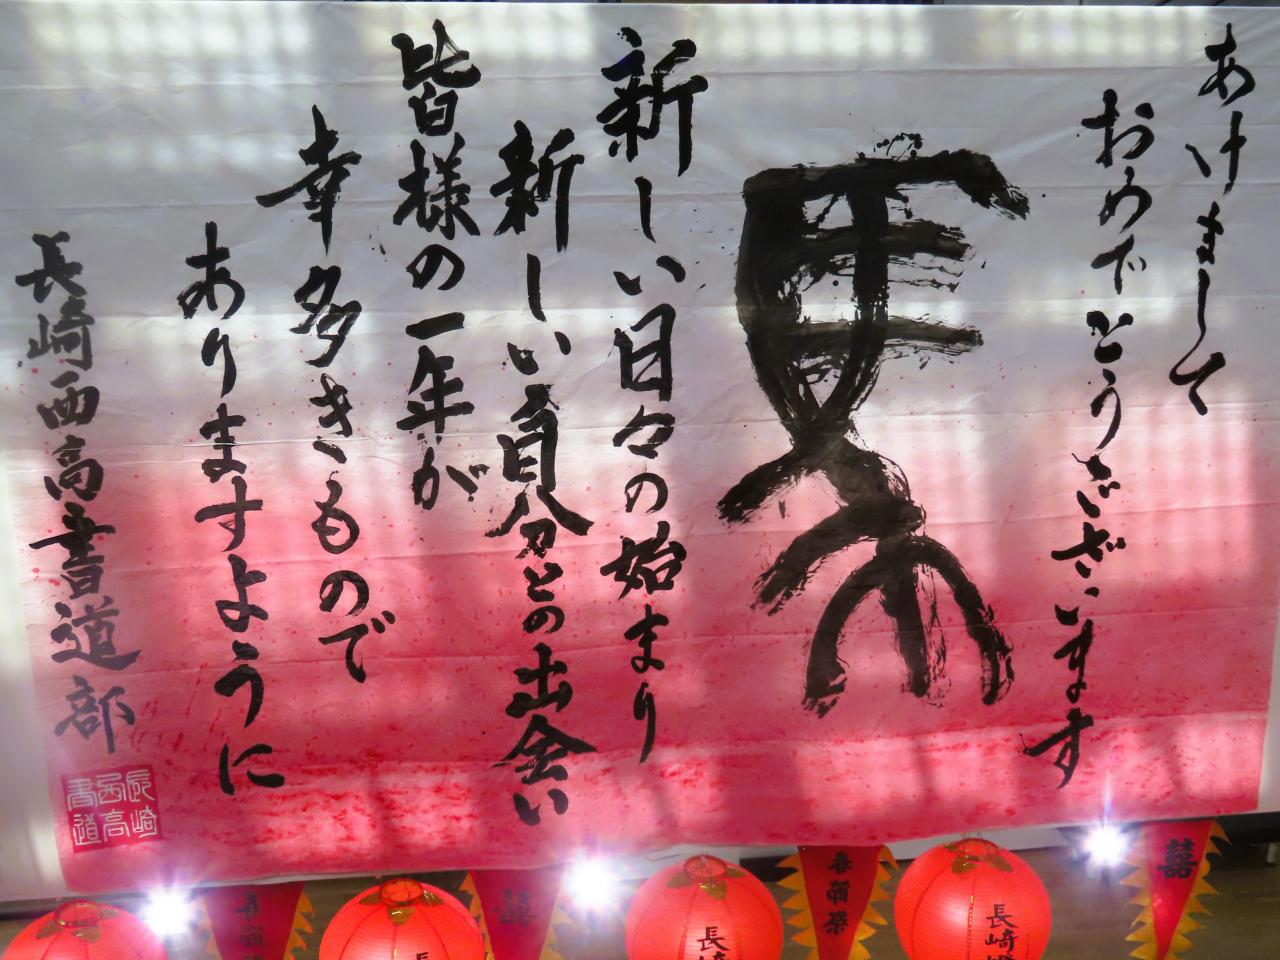 あけまして
おめでとうございます
馬
新しい日々の始まり
新しい自分との出会い
皆様の一年が
幸多きもので
ありますように
長崎西高書道部
長崎
西高
書道
春節祭
囍
長崎
長
囍
長崎